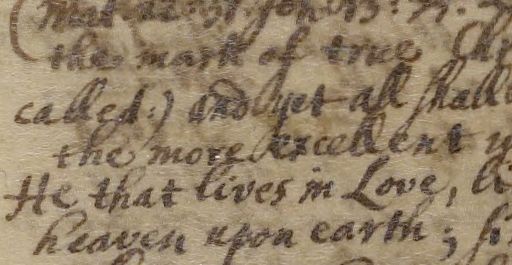 the mark of true
called:) and yet all shall
the more excellent
He that lives in Love, li
heaven upon earth;